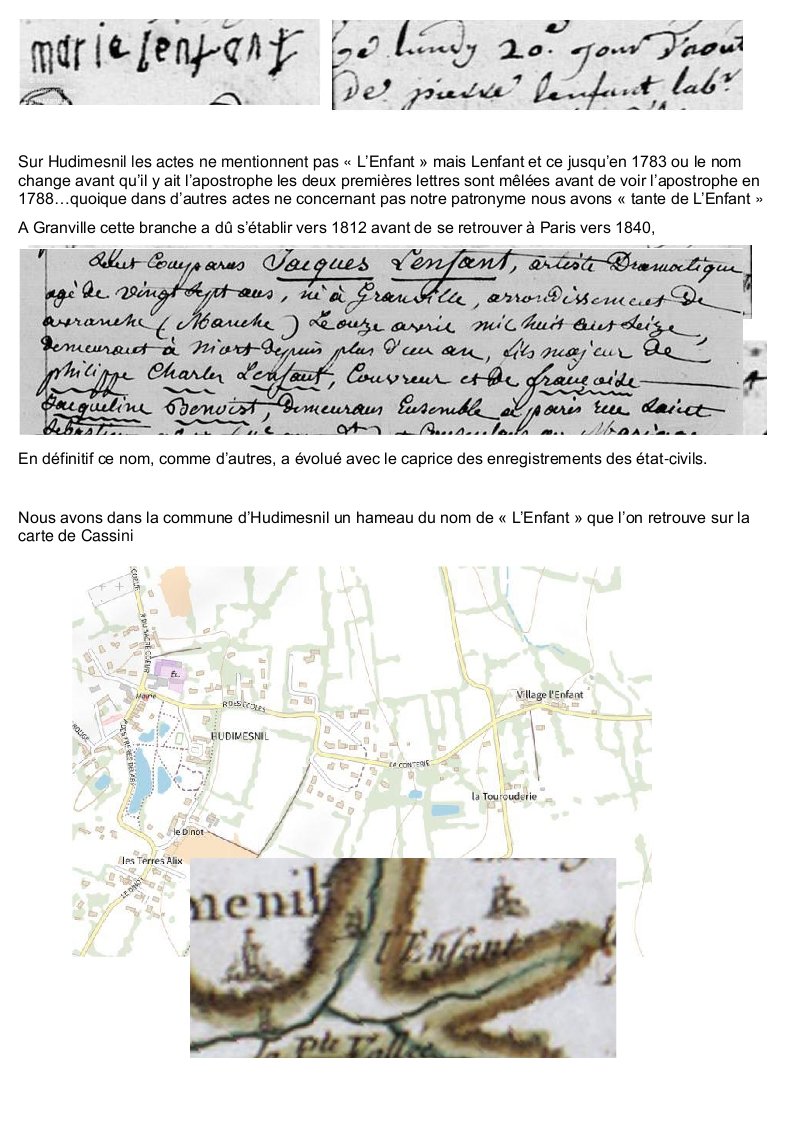 marie lenfant
Ce lundy 20e jour d'aout
De pierre lenfant labr
Sur Hudimesnil les actes ne mentionnent pas « L’Enfant » mais Lenfant et ce jusqu’en 1783 ou le nom
change avant qu’il y ait l’apostrophe les deux premières lettres sont mêlées avant de voir l’apostrophe en
1788…quoique dans d’autres actes ne concernant pas notre patronyme nous avons « tante de L’Enfant »
A Granville cette branche a dû s’établir vers 1812 avant de se retrouver à Paris vers 1840,
Sont Comparus Jacques Lenfant, artiste Dramatique
agé de vingt sept ans, né à Granville, arrondissement De
avranche (Manche) Le onze avril mil huit cent seize,
Demeurant à Niort depuis plus d'un an, fils majeur de
philippe Charles Lenfant, Couvreur et de françoise
Jacqueline Benoist, Demeurans Ensemble à paris rue Saint
En définitif ce nom, comme d’autres, a évolué avec le caprice des enregistrements des état-civils.
Nous avons dans la commune d’Hudimesnil un hameau du nom de « L’Enfant » que l’on retrouve sur la
carte de Cassini
R DU SACRE COEUR
Éc.
Village l'Enfant
Mairie
R DES ECOLES
HUDIMESNIL
LA CONTERIE
la Tourouderie
le Dinot
les Terres Alix
LE DINOT
menil
l'Enfant
la Pte Vallée